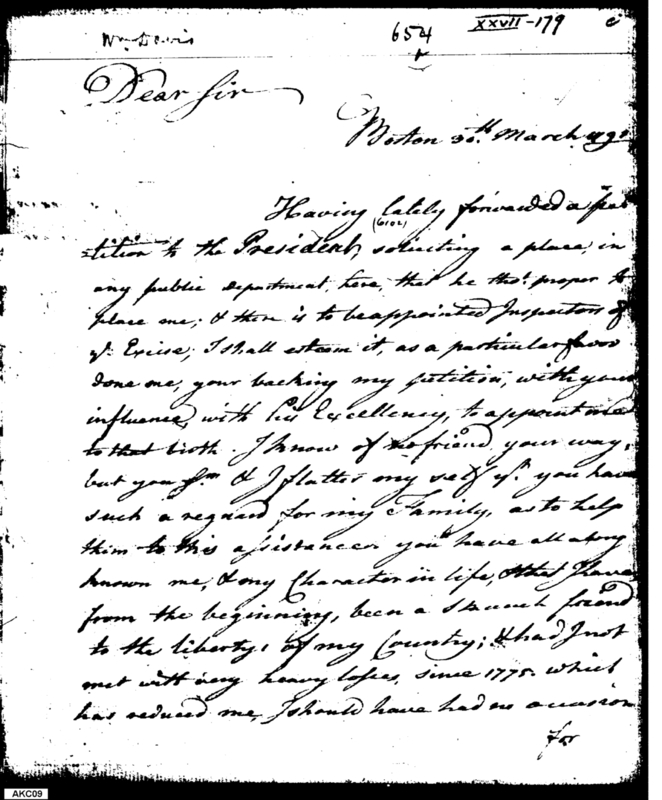 Wm Davis
654
XXVII-179
Dear Sir
Boston 30th March
Having lately forwarded a pe
(6102)
tition to the President, soliciting a place, in
any public department, here, that he tho't proper to
place me; & there is to be appointed Inspectors of
ye Excise; I shall esteem it, as a particular favor
done me, your backing my petition, with your
influence, with his Excellency, to appoint me
to that birth. I know of no friend, your way,
but you Sir & I flatter my self yt you have
such a regard for my Family, as to help
them to this assistance you have all along
known me, & my Character in life, & that I have
from the beginning, been a staunch friend
to the libertys of my Country; & had I not
met with very heavy losses, since 1775. which
has reduced me, I should have had no occasion
for
AKC09